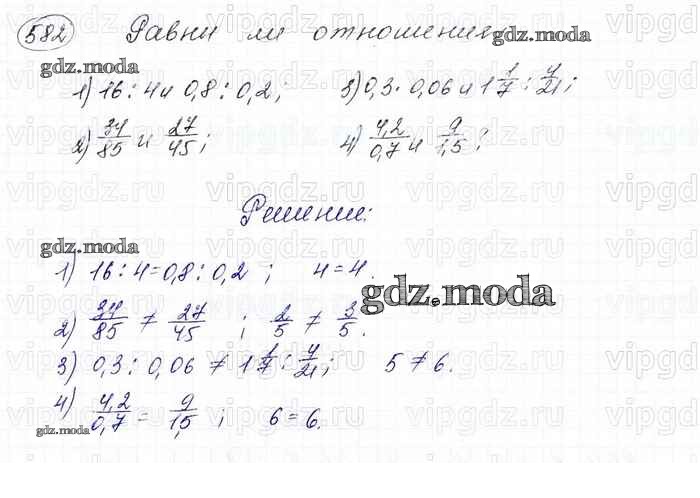 582 Равны ли отношения: gdz.moda
gdz.moda
1) 16 : 4 и 0,8 : 0,2 ; 3) 0,3 : 0,06 и 1 1/7 : 4/21 ;
2) 34/85 и 27/45 ; 4) 4,2/0,7 и 9/1,5 ;
Решение:
gdz.moda
1) 16 : 4 = 0,8 : 0,2 ; 4 = 4.
gdz.moda
2) 34/85 ≠ 27/45 ; 2/5 ≠ 3/5.
3) 0,3 : 0,06 ≠ 1 1/7 : 4/21 ; 5 ≠ 6.
4) 4,2/0,7 = 9/1,5 ; 6 = 6.
gdz.moda
vipgdz.ru